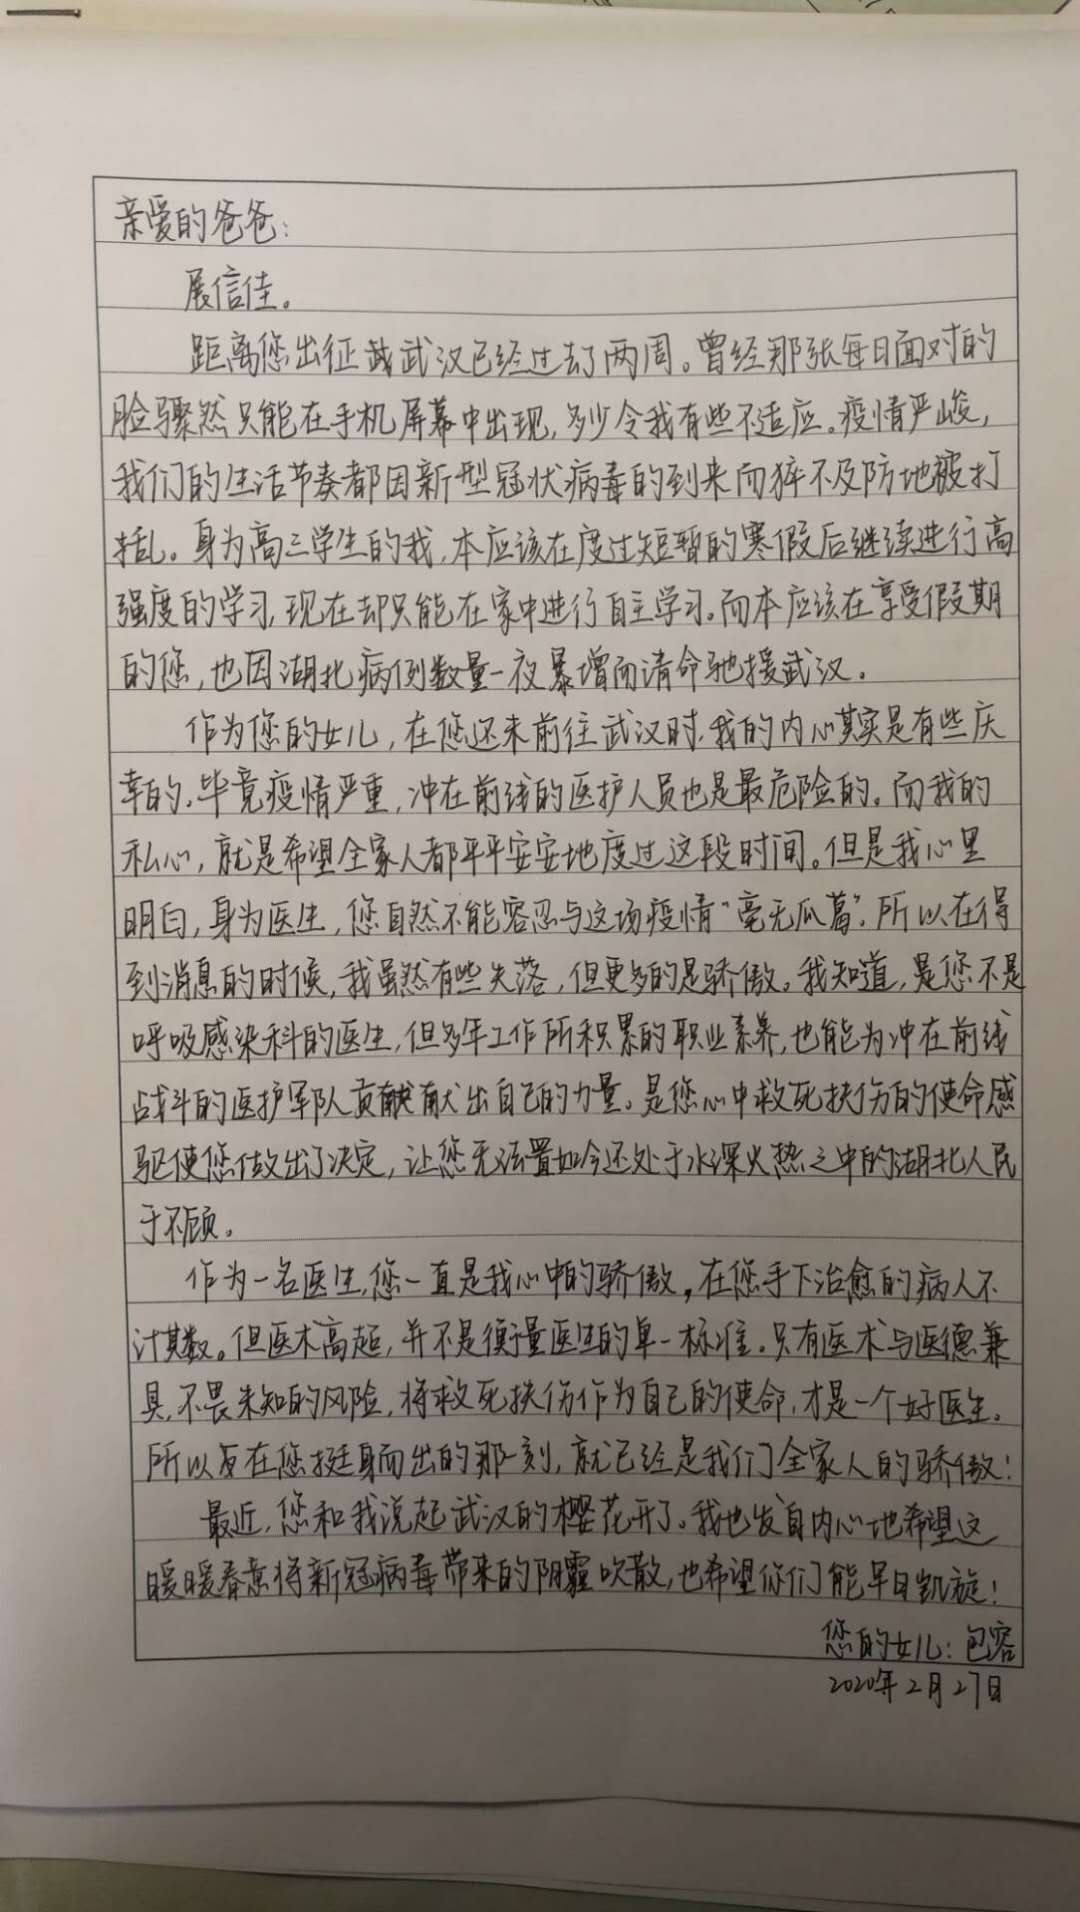 亲爱的爸爸：
展信佳。
距离您出征武汉已经过去了两周。曾经那张每日面对的
脸骤然只能在手机屏幕中出现，多少令我有些不适应。疫情严峻，
我们的生活节奏都因新型冠状病毒的到来而猝不及防地被打
乱。身为高三学生的我，本应该在度过短暂的寒假后继续进行高
强度的学习，现在却只能在家中进行自主学习。而本应该在享受假期
的您，也因湖北病例数量一夜暴增而请命驰援武汉。
作为您的女儿，在您还未前往武汉时，我的内心其实是有些庆
幸的，毕竟疫情严重，冲在前线的医护人员也是最危险的。而我的
私心，就是希望全家人都平平安安地度过这段时间。但是我心里
明白，身为医生，您自然不能容忍与这场疫情“毫无瓜葛”。所以在得
到消息的时候，我虽然有些失落，但更多的是骄傲。我知道，是您不是
呼吸感染科的医生，但多年工作所积累的职业素养，也能为冲在前线
战斗的医护军队贡献出自己的力量。是您心中救死扶伤的使命感
驱使您做出了决定，让您无法置如今还处于水深火热之中的湖北人民
于不顾。
作为一名医生，您一直是我心中的骄傲，在您手下治愈的病人不
计其数。但医术高超，并不是衡量医生的单一标准。只有医术与医德兼
具，不畏未知的风险，将救死扶伤作为自己的使命，才是一个好医生。
所以在您挺身而出的那一刻，就已经是我们全家人的骄傲！
最近，您和我说起武汉的樱花开了。我也发自内心地希望这
暖暖春意将新冠病毒带来的阴霾吹散，也希望你们能早日凯旋！
您的女儿：包容
2020年2月27日